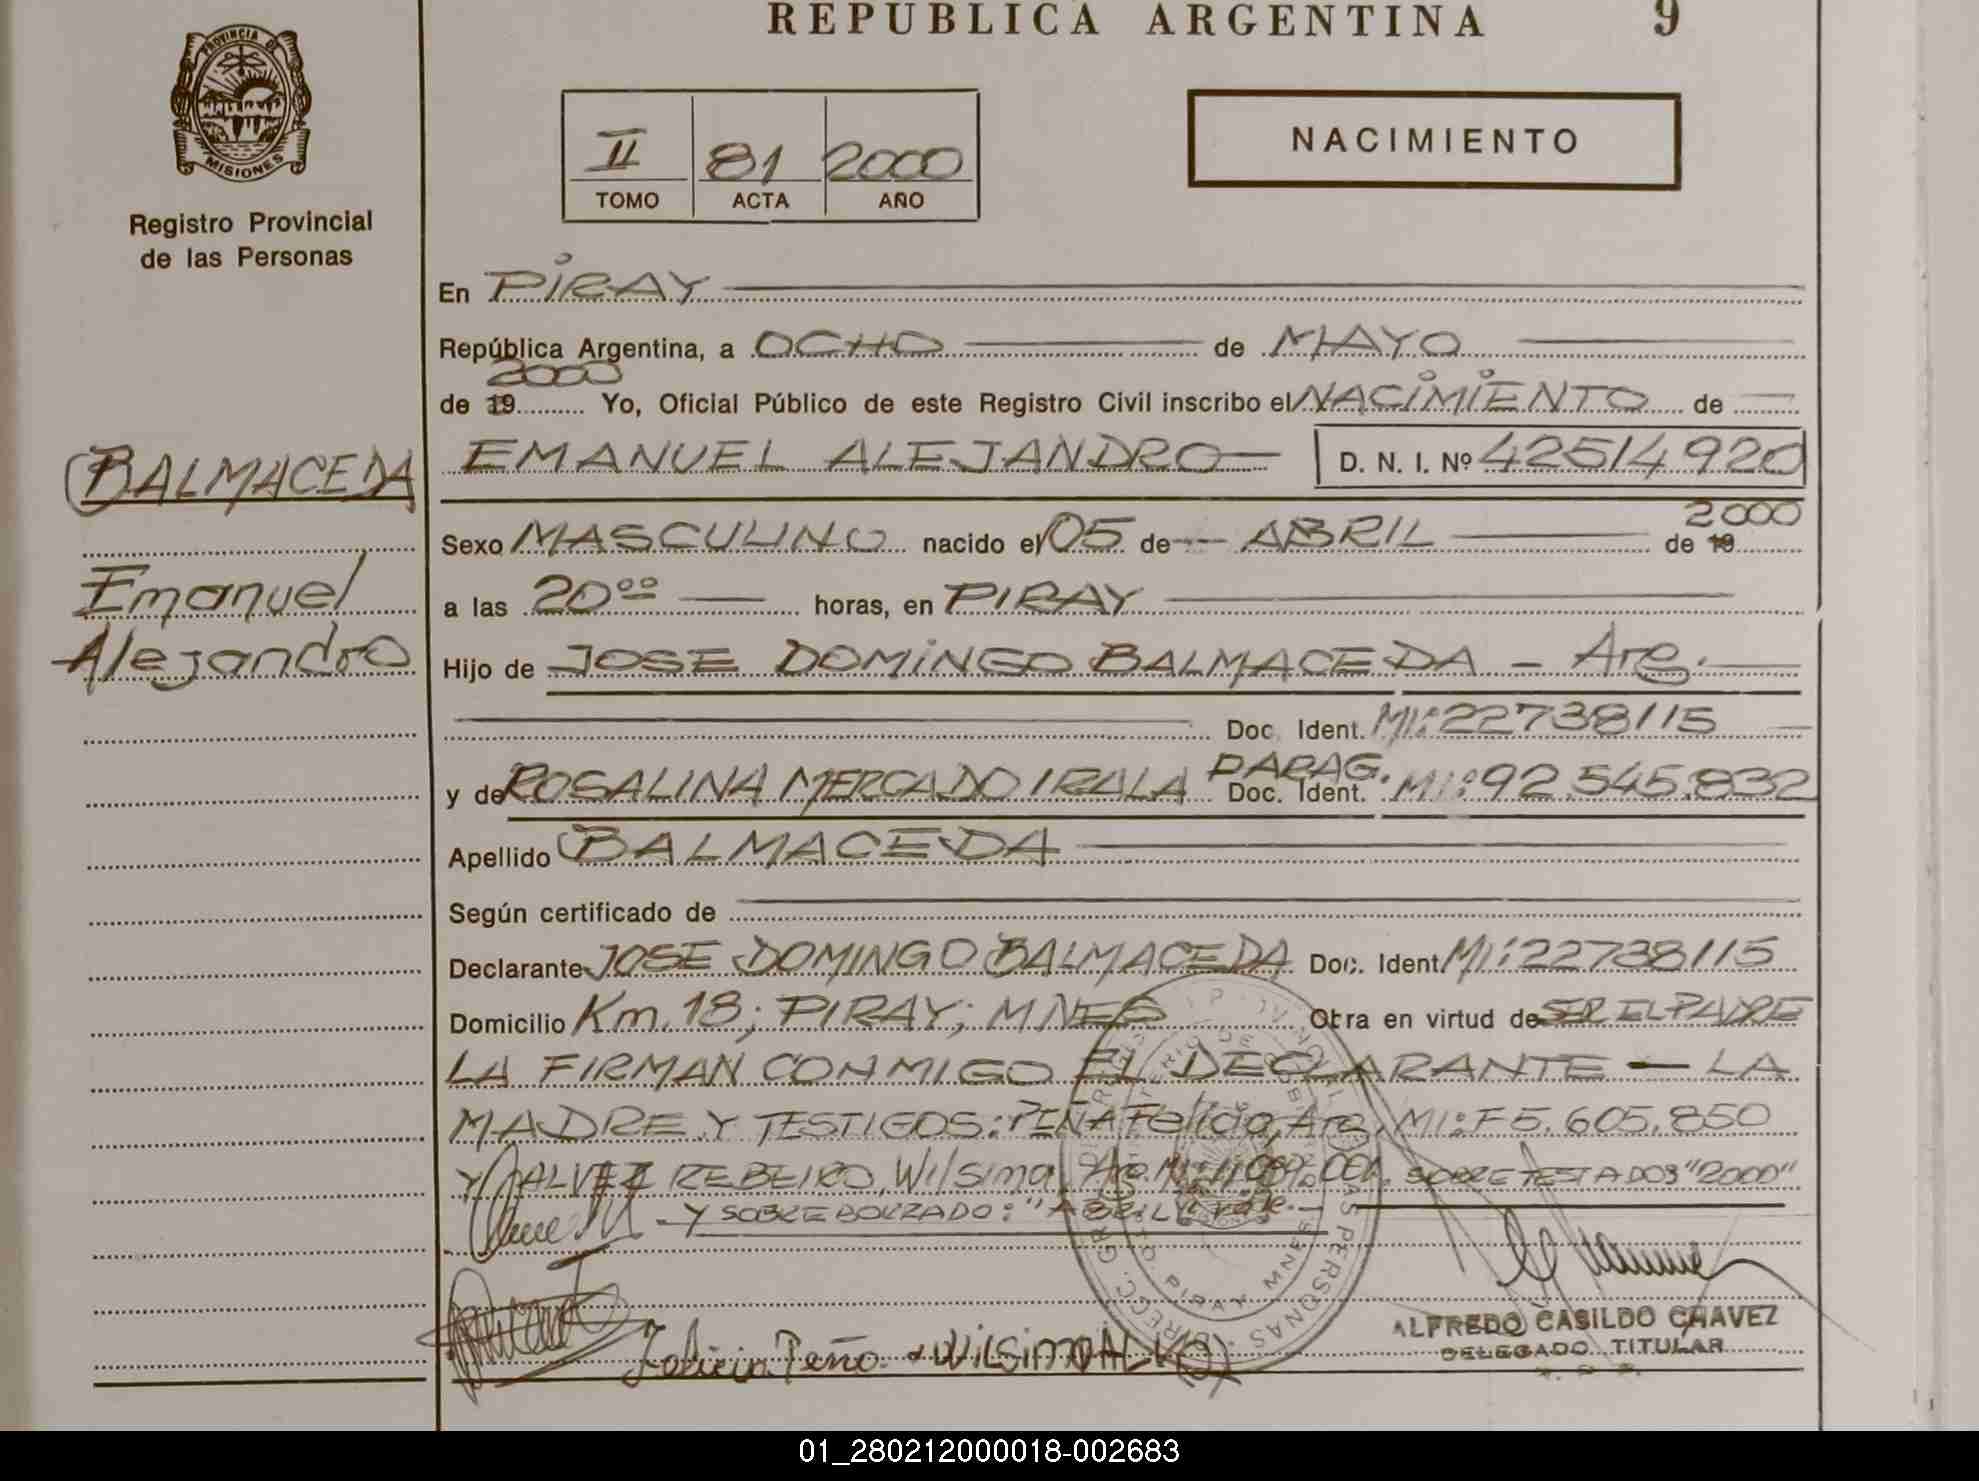 REPUBLICA ARGENTINA 9
PROVINCIA DE
MISIONES
Registro Provincial
de las Personas
II 81 2000
TOMO ACTA AÑO
NACIMIENTO
En PIRAY
República Argentina, a OCHO de MAYO
2000
de 19 Yo, Oficial Público de este Registro Civil inscribo el NACIMIENTO de
BALMACEDA
EMANUEL ALEJANDRO D. N. I. Nº 42514920
2000
Sexo MASCULINO nacido el 05 de ABRIL de 19
Emanuel
a las 20⁰⁰ horas, en PIRAY
Alejandro
Hijo de JOSE DOMINGO BALMACEDA - Arg.
Doc. Ident. MI: 22738115
PARAG.
y de ROSALINA MERCADO IRALA Doc. Ident. MI: 92.545.832
Apellido BALMACEDA
Según certificado de
Declarante JOSE DOMINGO BALMACEDA Doc. Ident MI: 22738115
Domicilio Km. 18; PIRAY; MNES Obra en virtud de SER EL PADRE
LA FIRMAN CONMIGO EL DECLARANTE - LA
MADRE Y TESTIGOS: PEÑA Felicia, Arg. MI: F5.605.850
Y GALVEZ REBEIRO, Wilsima, Arg. SOBRETESTADOS "2000"
- Y SOBREBORRADO: "ABRIL"
PIRAY MNES
ALFREDO CASILDO CHAVEZ
DELEGADO TITULAR
Felicia Peña
01_280212000018-002683